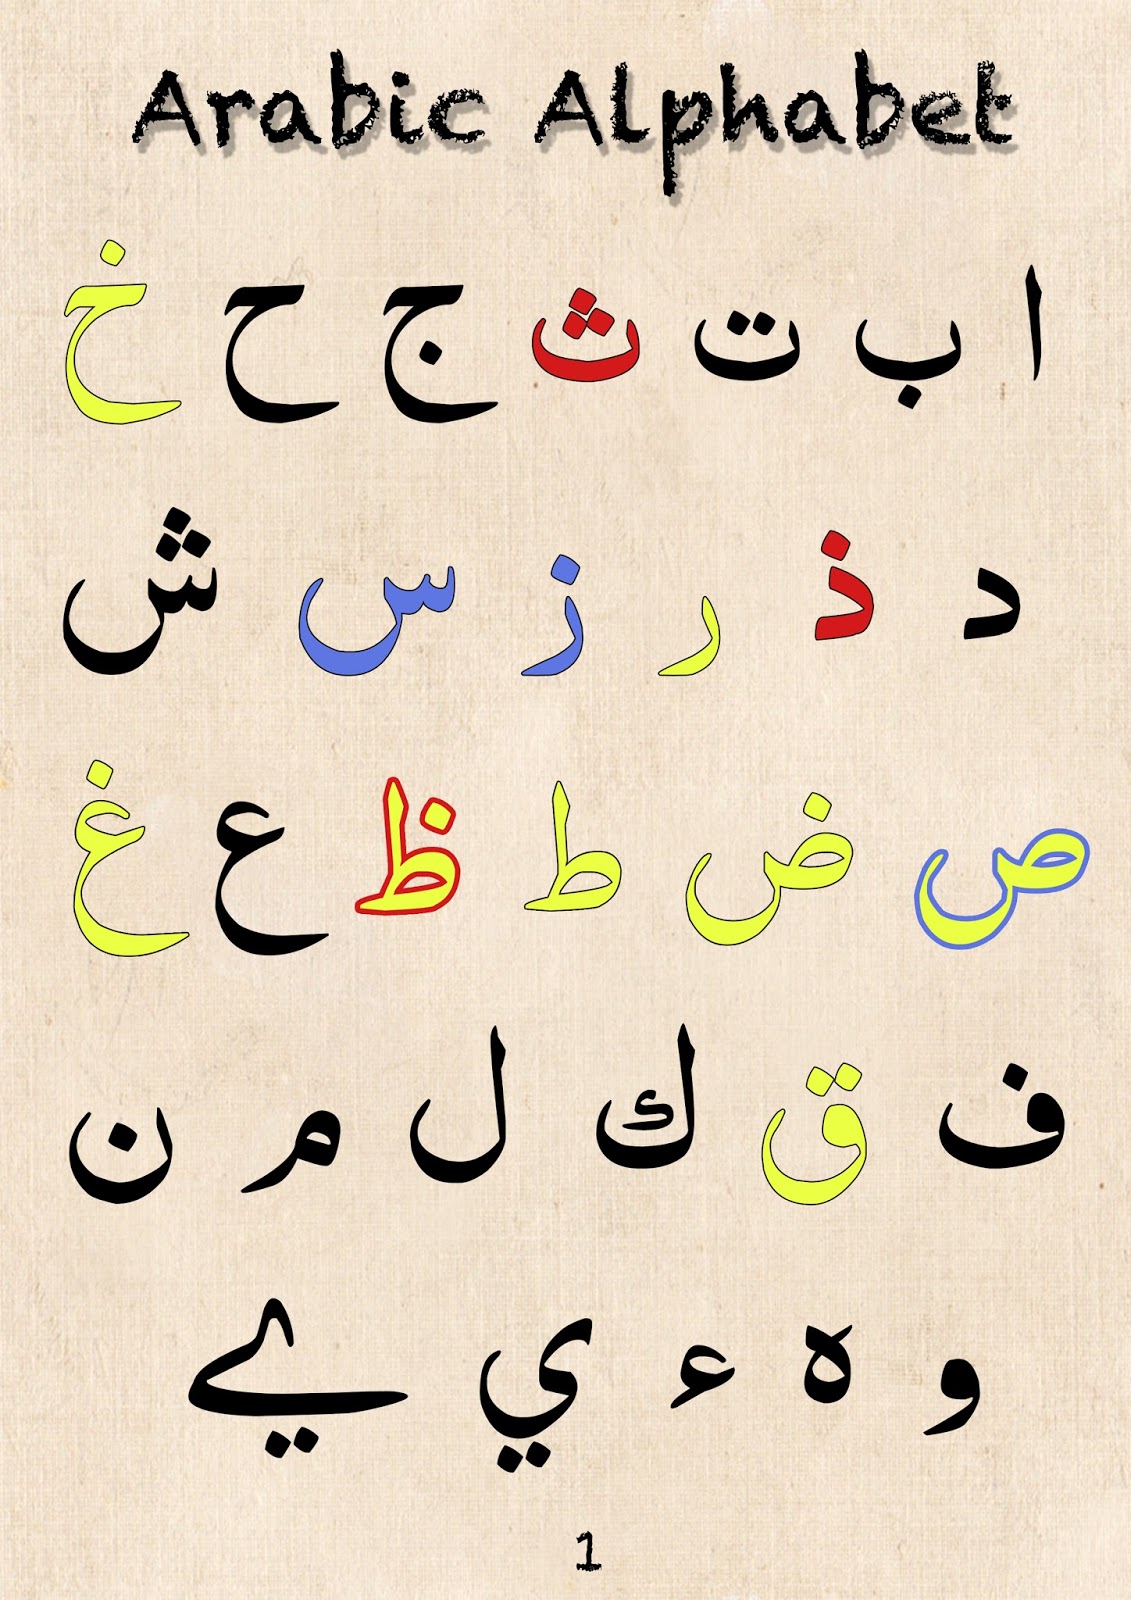 Arabic Alphabet
ا ب ت ث ج ح خ
د ذ ر ز س ش
ص ض ط ظ ع غ
ف ق ك ل م ن
و ه ء ي ۑ
1